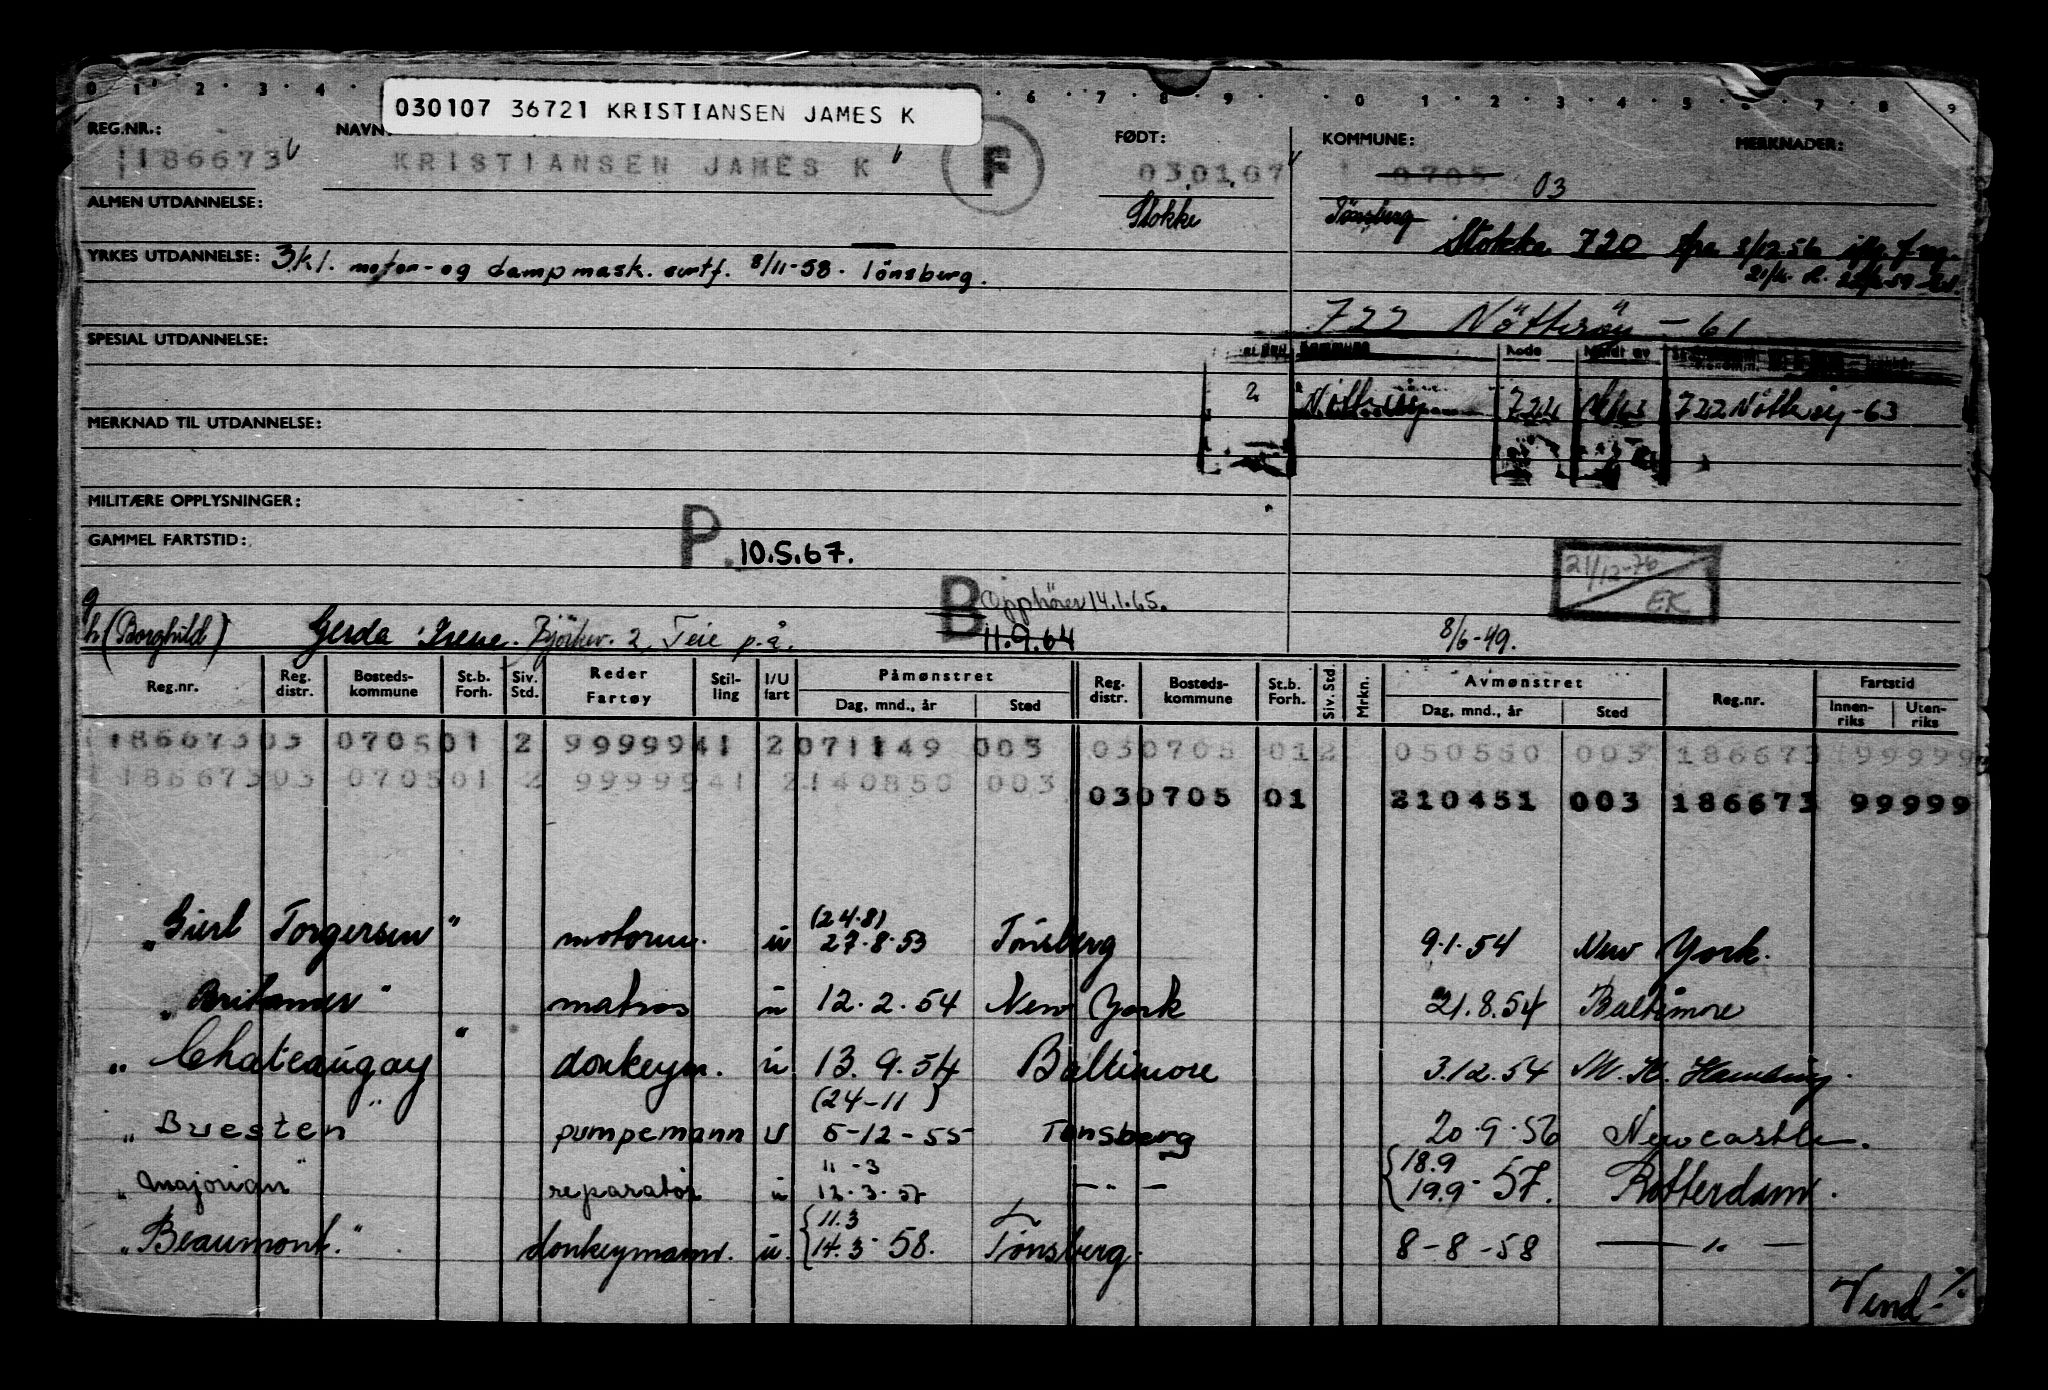 0 1 2 3 4 6 7 8 9 0 1 2 3 4 5 6 7 8 9
030107 36721 KRISTIANSEN JAMES K
REG.NR.: NAVN: FØDT: KOMMUNE: MERKNADER:
186673 KRISTIANSEN JAMES K F 030107 0705 03
ALMEN UTDANNELSE: Stokke Tönsberg
Stokke 720 fra 3/12.56
YRKES UTDANNELSE: 3.kl. motor- og dampmask. sertf. 8/11-58. Tönsberg.
722 Nötteröy - 61
SPESIAL UTDANNELSE:
Kommune Kode
2 Nötteröy 722 722 Nötteröy-63
MERKNAD TIL UTDANNELSE:
MILITÆRE OPPLYSNINGER:
GAMMEL FARTSTID:
P. 10.5.67.
21/12-76
EK
B Opphörer 14.1.65.
11.9.64
g
h (Borghild) Gerda Irene. 2, Teie p.å. 8/6-49.
Reg.nr. Reg. distr. Bosteds-kommune St.b. Forh. Siv. Std. Reder Fartøy Stil-ling I/U fart Påmønstret Dag, mnd., år Sted Reg. distr. Bosteds-kommune St.b. Forh. Siv. Std. Mrkn. Avmønstret Dag, mnd., år Sted Reg.nr. Fartstid Innen-riks Uten-riks
186673 03 0705 01 2 99999 41 2 071149 003 03 0705 01 2 050550 003 186673 99999
186673 03 0705 01 2 99999 41 2 140850 003
03 0705 01 210451 003 186673 99999
(24.8)
"Sierl Torgersen" motorm. u 27.8.53 Tönsberg 9.1.54 New York.
matros u 12.2.54 New York 21.8.54 Baltimore
"Chateaugay" donkeym. u. 13.9.54 Baltimore 3.12.54
(24-11)
"Buesten" pumpemann u 5-12-55 Tønsberg 20.9.56 Newcastle.
11-3 18.9
"Majorian" reparatör u 12.3.57 — " — 19.9-57. Rotterdam.
11.3
"Beaumont." donkeymann. u. 14.3-58. Tønsberg. 8-8-58 — " —
Vend %